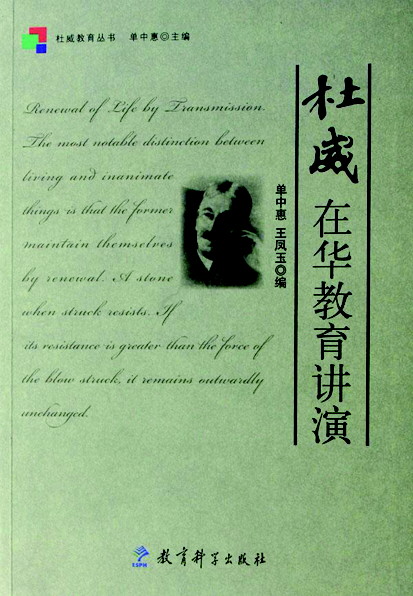 杜威教育丛书 单中惠◎主编
杜威
在华教育讲演
单中惠 王凤玉◎编
Renewal of Life by Transmission.
The most notable distinction between
living and inanimate
things is that the former
maintain themselves
by renewal. A stone
when struck resists. If
its resistance is greater than the force of
the blow struck, it remains outwardly
unchanged.
教育科学出版社
ESPH